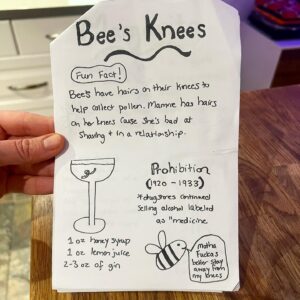 Bee's Knees
Fun Fact!
Bees have hairs on their knees to
help collect pollen. Mamme has hairs
on her knees cause she's bad at
Shaving + in a relationship.
Prohibition
(1920 - 1933)
*drugstores continued
selling alcohol labeled
as "medicine
1 oz honey syrup
1 oz lemon juice
2-3 oz of gin
Motha
Fucka's
better stay
away from
my knees